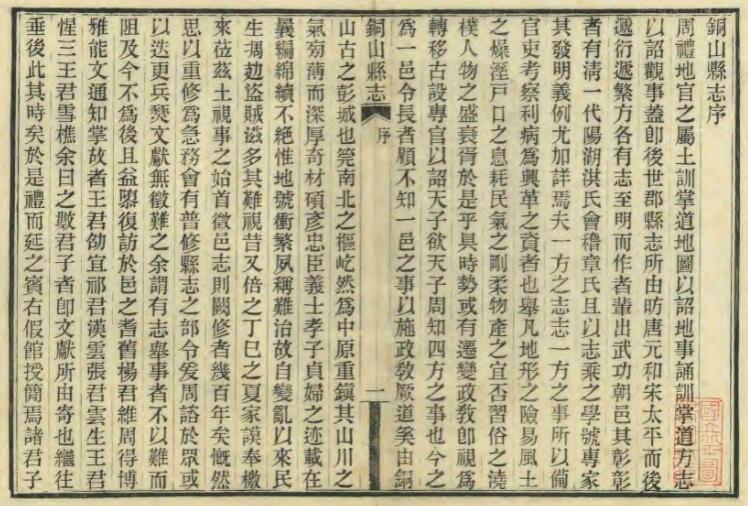 銅山縣志序
周禮地官之屬土訓掌道地圖以詔地事誦訓掌道方志
以詔觀事蓋卽後世郡縣志所由昉唐元和宋太平而後
遞衍遞繁方各有志至明而作者輩出武功朝邑其彰彰
者有淸一代陽湖洪氏會稽章氏且以志乘之學號專家
其發明義例尤加詳焉夫一方之志志一方之事所以備
官吏考察利病爲興革之資者也舉凡地形之險易風土
之燥溼戸口之息耗民氣之剛柔物產之宜否習俗之澆
樸人物之盛衰胥於是乎具時勢或有遷變政敎卽視爲
轉移古設專官以詔天子欲天子周知四方之事也今之
爲一邑令長者顧不知一邑之事以施政敎厥道奚由銅
銅山縣志
序
一
山古之彭城也筦南北之樞屹然爲中原重鎭其山川之
氣菊薄而深厚奇材碩彥忠臣義士孝子貞婦之迹載在
曩編綿續不絕惟地號衝繁夙稱難治故自變亂以來民
生凋𡙇盜賊滋多其難視昔又倍之丁巳之夏家謨奉檄
來莅茲土視事之始首徵邑志則闕修者幾百年矣慨然
思以重修爲急務會有普修縣志之部令爰周諮於眾或
以迭更兵燹文獻無徵難之余謂有志舉事者不以難而
阻及今不爲後且益隳復訪於邑之耆舊楊君維周得博
雅能文通知掌故者王君劭宜祁君漢雲張君雲生王君
惺三王君雪樵余曰之數君子者卽文獻所由寄也繼往
垂後此其時矣於是禮而延之賓右假館授簡焉諸君子